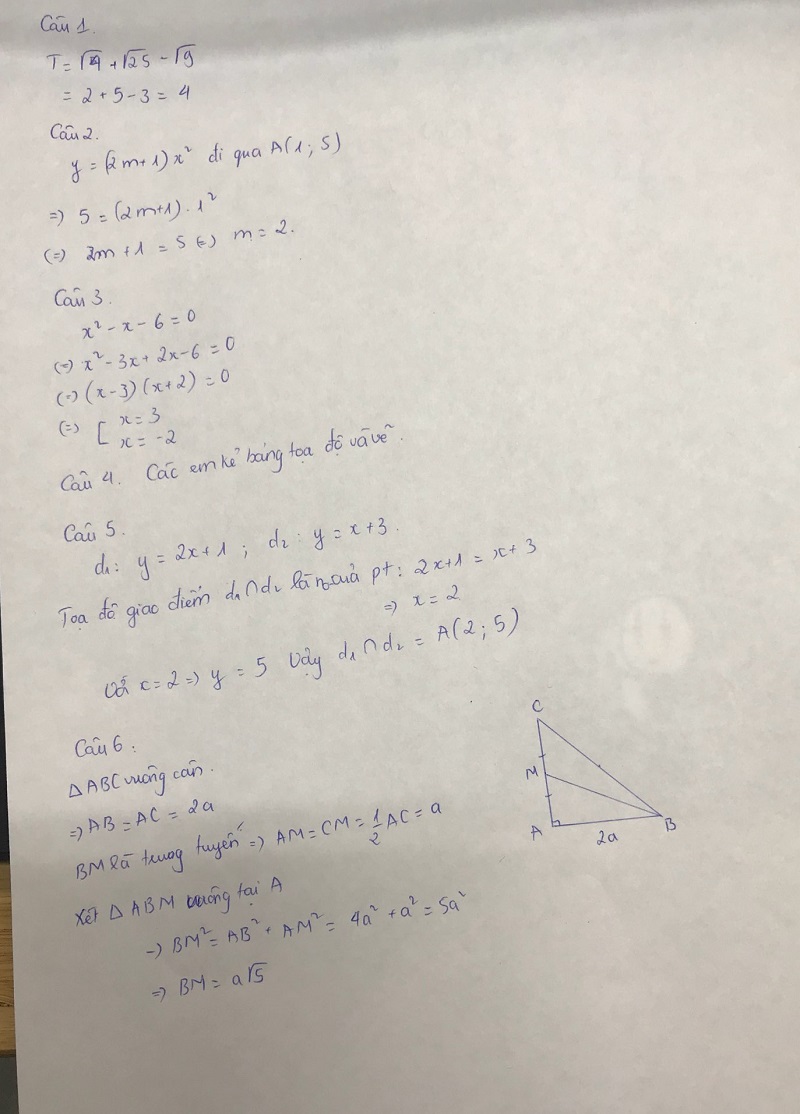 Câu 1.
T = √4 + √25 - √9
= 2 + 5 - 3 = 4
Câu 2.
y = (2m+1)x² đi qua A(1; 5)
=> 5 = (2m+1).1²
(=) 2m + 1 = 5 (=) m = 2.
Câu 3.
x² - x - 6 = 0
(=) x² - 3x + 2x - 6 = 0
(=) (x-3)(x+2) = 0
(=) [ x = 3
x = -2
Câu 4. Các em kẻ bảng tọa độ và vẽ.
Câu 5.
d₁: y = 2x+1 ; d₂: y = x+3.
Tọa độ giao điểm d₁∩d₂ là no của pt: 2x+1 = x+3
=> x = 2
Với x = 2 => y = 5 Vậy d₁∩d₂ = A(2; 5)
Câu 6:
△ABC vuông cân.
=> AB = AC = 2a
BM là trung tuyến => AM = CM = 1/2 AC = a
Xét △ABM vuông tại A
=> BM² = AB² + AM² = 4a² + a² = 5a²
=> BM = a√5
C
M
A
B
2a